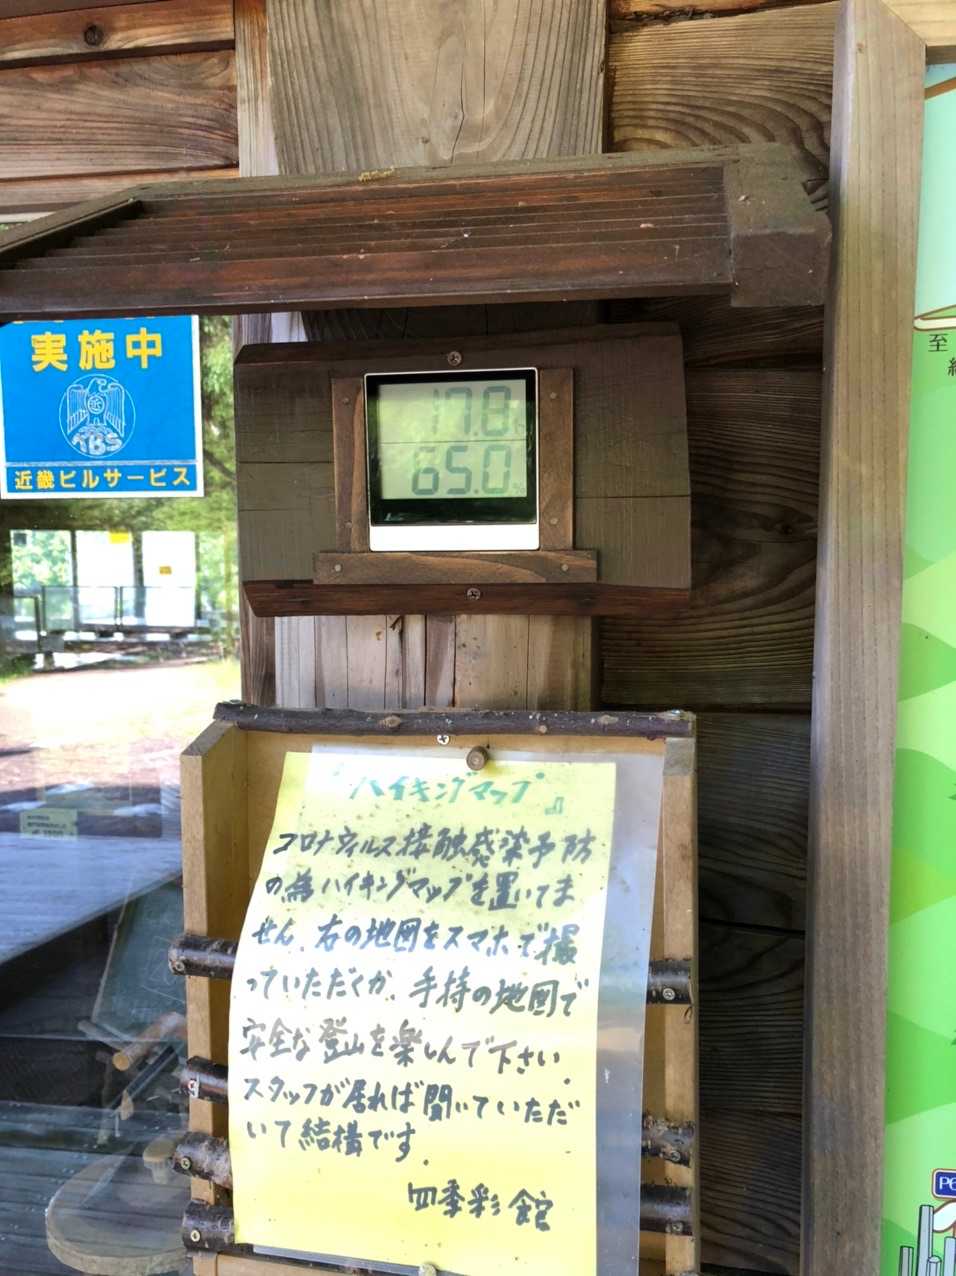 実施中
KBS
近畿ビルサービス
17.8
65.0
至
『ハイキングマップ』
コロナウィルス接触感染予防
の為ハイキングマップを置いてま
せん、右の地図をスマホで撮
っていただくか、手持の地図で
安全な登山を楽しんで下さい。
スタッフが居れば聞いていただ
いて結構です。
四季彩館